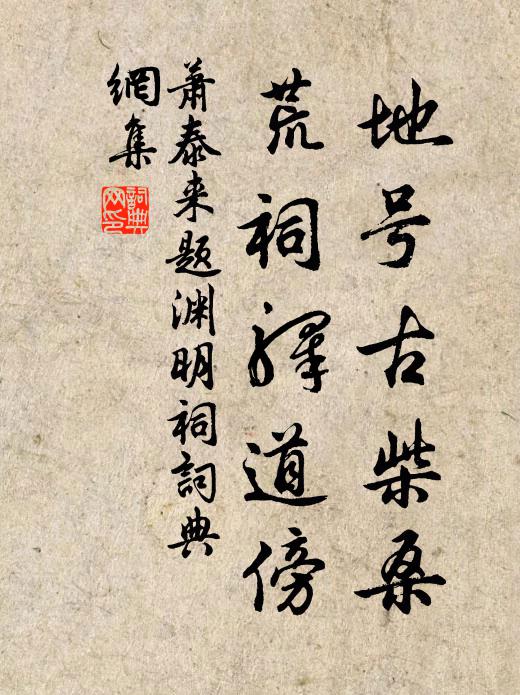 地号古柴桑
荒祠驛道傍
萧泰来题渊明祠詞典
網集
詞典
网印